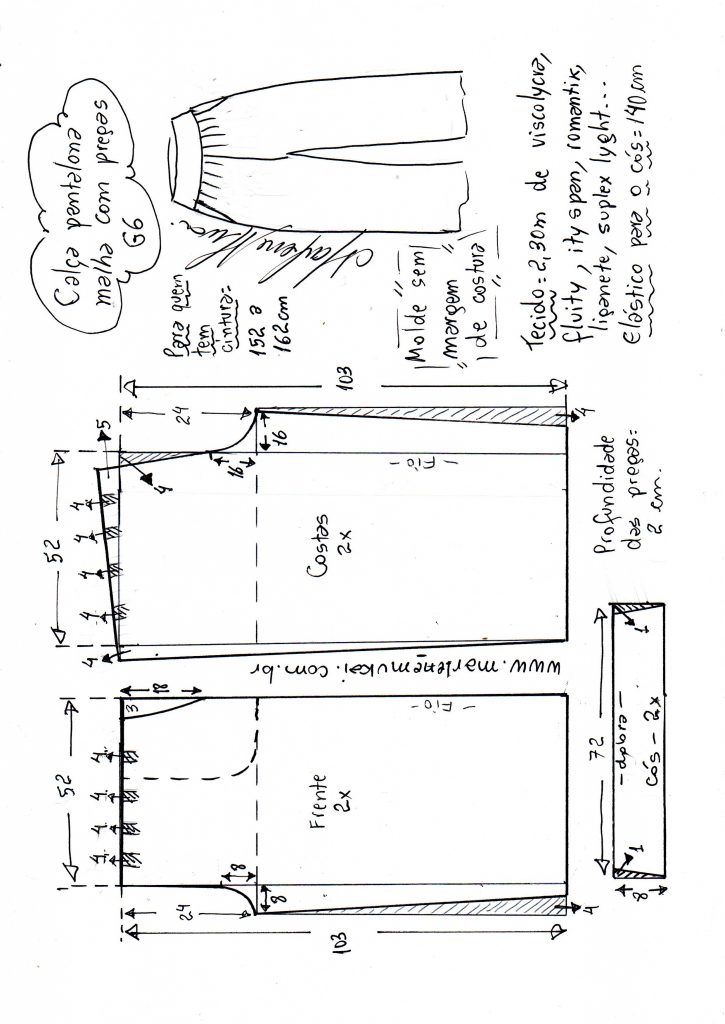 Calça pantalona
malha com pregas
G6
Para quem
tem
cintura:
152 a
162cm
Marlene Mukai
Molde sem
margem
de costura
Tecido = 2,30m de viscolycra,
fluity, ity span, romantix,
liganete, suplex lyght...
Elástico para o cós = 140 cm
52
5
24
103
4
4
4
4
4
4
16
16
Costas
2x
- Fio -
4
www.marlenemukai.com.br
52
18
3
4
4
4
4
Frente
2x
- Fio -
8
8
24
103
4
Profundidade
das pregas:
2 cm.
72
- dobra -
cós - 2x
1
1
8